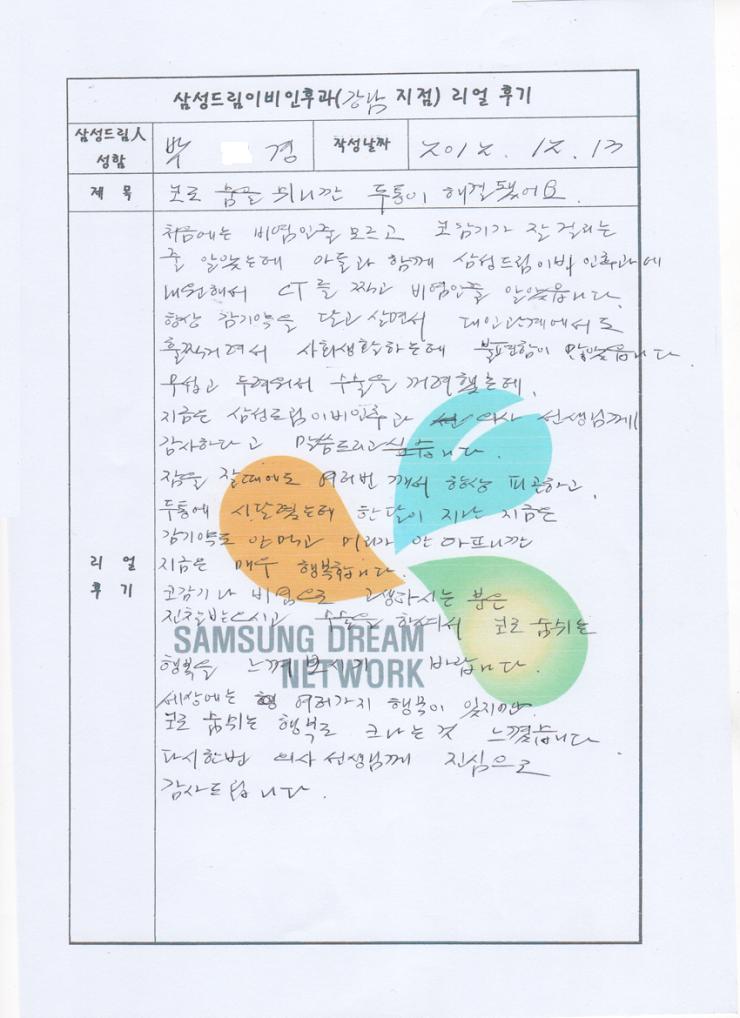 삼성드림이비인후과(강남 지점) 리얼 후기
삼성드림人 성함
박 경
작성날짜
2012. 12. 13
제 목
코로 숨을 쉬니깐 두통이 해결됐어요.
리 얼 후 기
처음에는 비염인줄 모르고 코감기가 잘 걸리는
줄 알았는데 아들과 함께 삼성드림이비인후과에
내원해서 CT를 찍고 비염인줄 알았습니다.
항상 감기약을 달고 살면서 대인관계에서도
훌쩍거려서 사회생활하는데 불편함이 많았습니다
무섭고 두려워서 수술을 꺼려했는데,
지금은 삼성드림이비인후과 의사 선생님께
감사하다고 말씀드리고 싶습니다.
잠을 잘때에도 여러번 깨서 항상 피곤하고,
두통에 시달렸는데 한달이 지난 지금은
감기약도 안먹고 머리가 안 아프니깐
지금은 매우 행복합니다.
코감기나 비염으로 고생하시는 분은
진찰받으시고 수술을 하셔서 코로 숨쉬는
행복을 느껴보시기 바랍니다.
세상에는 여러가지 행복이 있지만
코로 숨쉬는 행복도 크다는 것 느꼈습니다
다시한번 의사 선생님께 진심으로
감사드립니다.
SAMSUNG DREAM
NETWORK